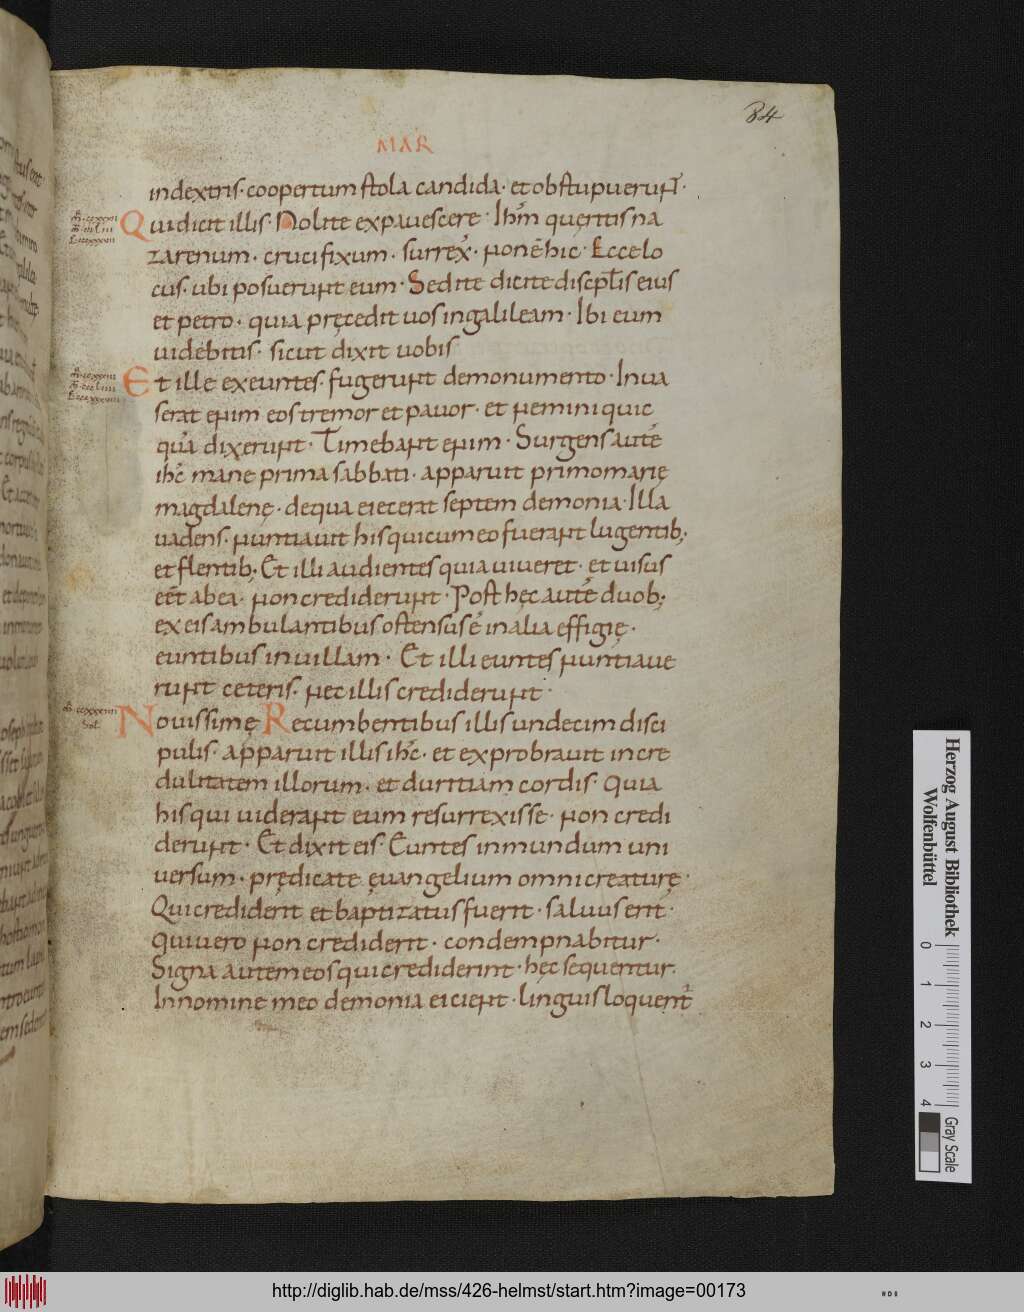 84
MAR
indextris· coopertum stola candida· et obstupuerunt̄·
Qui dicit illis· Nolite expauescere· Ihm̄ queritis na
zarenum· crucifixum· surrex̄· non ē hic· Ecce lo
cus· ubi posuerunt eum· Sed ite dicite discip̄lis eius
et petro· quia pręcedit uos in galileam· Ibi eum
uidebitis· sicut dixit uobis
Et ille exeuntes· fugerunt de monumento· Inua
serat enim eos tremor et pauor· et nemini quic
quā dixerunt· Timebant enim· Surgens autē
ihc̄ mane prima sabbati· apparuit primo marię
magdalenę· de qua eiecerat septem demonia· Illa
uadens· nuntiauit his qui cum eo fuerant lugentib;
et flentib; Et illi audientes quia uiueret· et uisus
eēt ab ea· non crediderunt· Post hęc autē duob;
ex eis ambulantibus ostensus ē in alia effigie·
euntibus in uillam· Et illi euntes nuntiaue
runt ceteris· nec illis crediderunt·
Nouissimę Recumbentibus illis undecim disci
pulis· apparuit illis ihc̄· et exprobrauit incre
dulitatem illorum· et duritiam cordis· Quia
his qui uiderant eum resurrexisse· non credi
derunt· Et dixit eis· Euntes in mundum uni
uersum· prędicate ęuangelium omni creaturę·
Qui crediderit et baptizatus fuerit· saluus erit·
Qui uero non crediderit· condempnabitur·
Signa autem eos qui crediderint· hęc sequentur·
In nomine meo demonia eicient· linguis loquent̄
Herzog August Bibliothek
Wolfenbüttel
0 1 2 3 4
Gray Scale
http://diglib.hab.de/mss/426-helmst/start.htm?image=00173